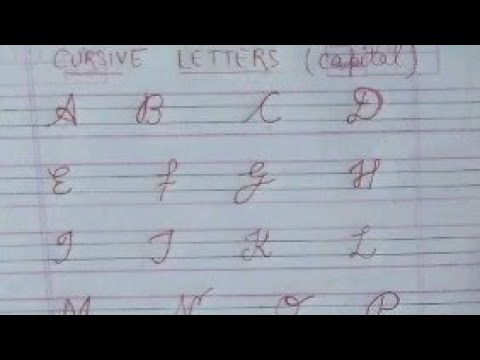 CURSIVE LETTERS (capital)
A B C D
E F G H
I J K L
M N O P